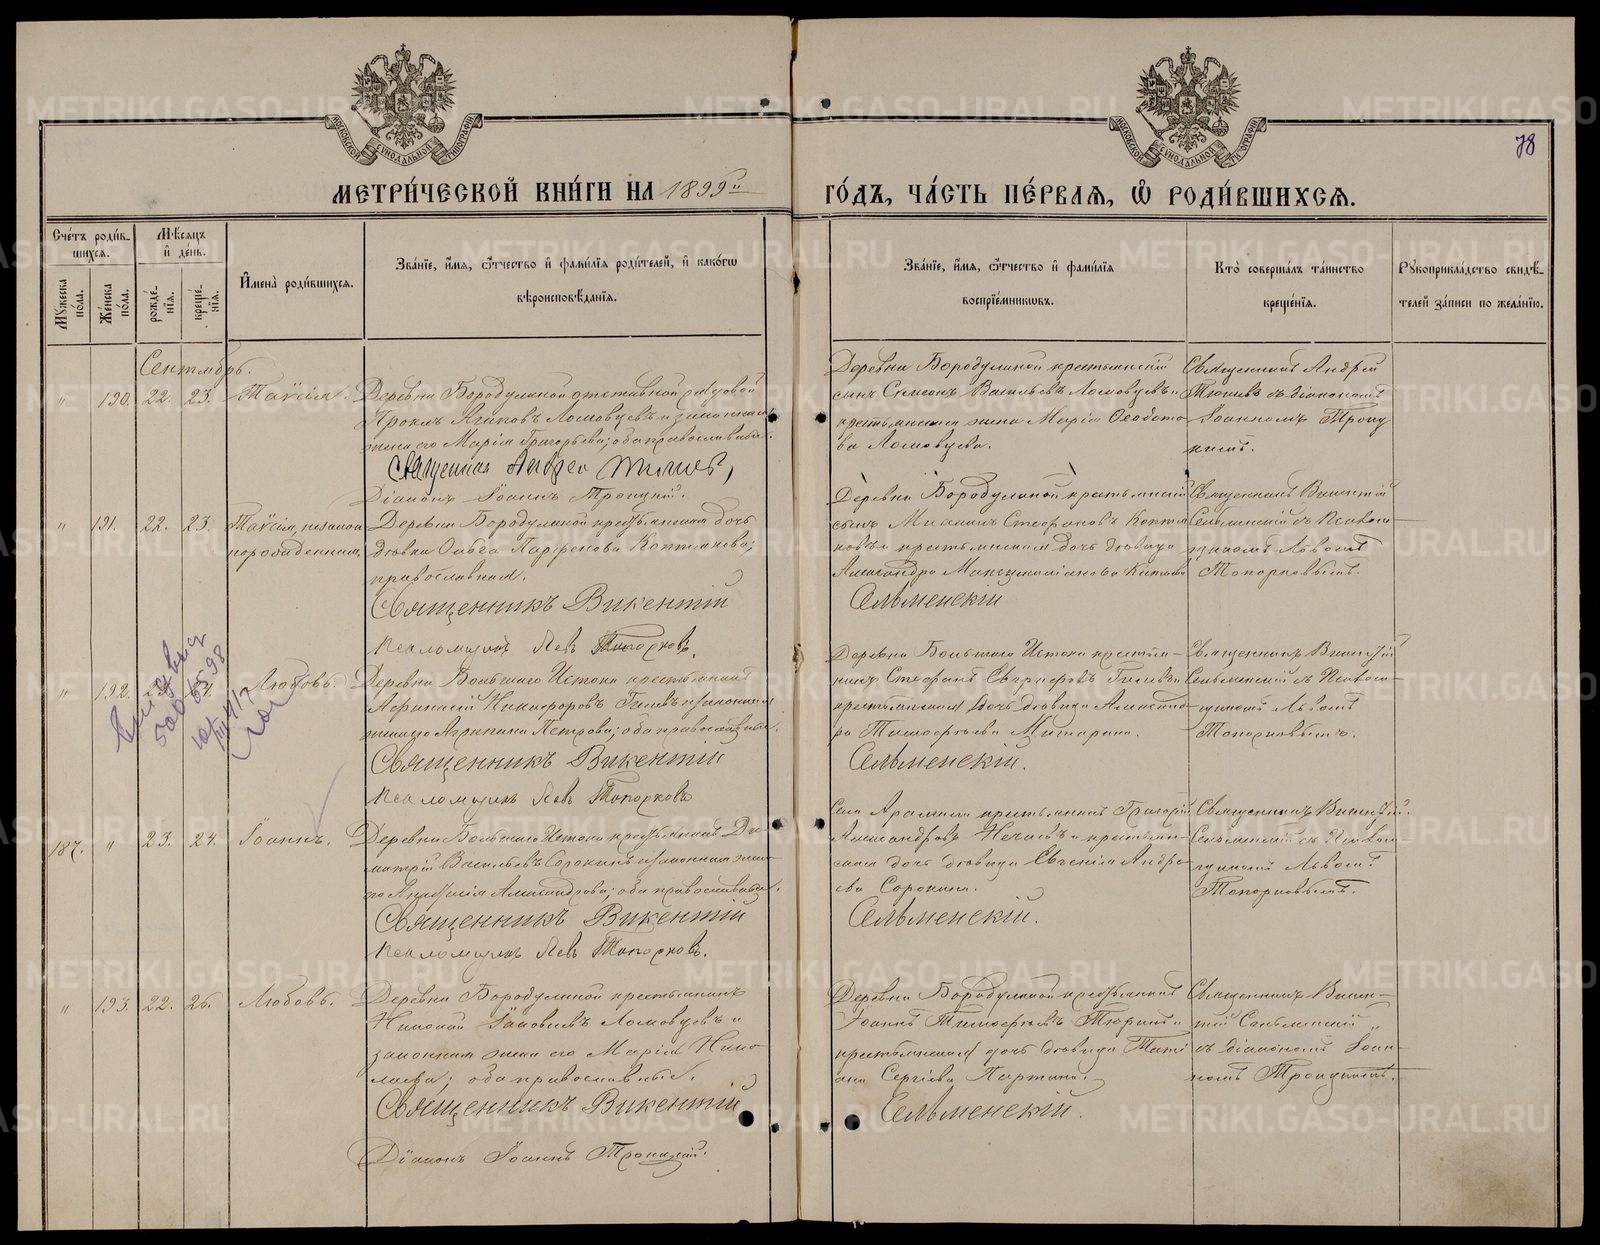 МОСКОВСКОЙ СѴНОДАЛЬНОЙ ТИПОГРАФІИ
МОСКОВСКОЙ СѴНОДАЛЬНОЙ ТИПОГРАФІИ
78
МЕТРИ́ЧЕСКОЙ КНИ́ГИ НА 1899й ГО́ДЪ, ЧА́СТЬ ПЕ́РВАЯ, Ѡ҆ РОДИ́ВШИХСЯ.
Сче́тъ роди́в-
шихся.
Му́жеска по́ла.
Же́нска по́ла.
Мѣ́сяцъ
и҆ де́нь.
рожде́-
нїя.
креще́-
нїя.
И҆мена̀ роди́вшихся.
Зва́нїе, и҆́мя, ѻ҆́тчество и҆ фами́лїя роди́телей, и҆ како́гѡ
вѣроисповѣ́данїя.
Зва́нїе, и҆́мя, ѻ҆́тчество и҆ фами́лїя
воспрїе́мникѡвъ.
Кто̀ соверша́лъ та́инство
креще́нїя.
Рꙋкоприкла́дство свидѣ́-
телей за́писи по жела́нїю.
Сентябрь.
" 190. 22. 23. Таисія.
Деревни Бородулиной отставной рядовой
Проклъ Агаповъ Ломовцевъ и законная
жена его Марія Григорьева; оба православные.
Священникъ Андрей
Діаконъ Іоаннъ Троицкій.
Деревни Бородулиной крестьянскій
сынъ Симеонъ Васильевъ Ломовцевъ и
крестьянская жена Марія Ѳеодото-
ва Ломовцева.
Священникъ Андрей
съ діакономъ
Іоанномъ Троиц-
кимъ.
" 191. 22. 23. Таисія, незаконно-
рожденная.
Деревни Бородулиной крестьянская дочь
дѣвка Ольга Парѳенова Коптякова;
православная.
Священникъ Викентій Сельменскій
Псаломщикъ Левъ Топорковъ.
Деревни Бородулиной крестьянскій
сынъ Стефановъ Коптя-
ковъ и крестьянская дочь дѣвица
Александра
Священникъ Викентій
Сельменскій съ Псалом-
щикомъ Львомъ
Топорковымъ.
" 192. Любовь.
Деревни Большаго Истока крестьянинъ
Никифоровъ Гилевъ и законная
жена его Агрипина Петрова; оба православные.
Священникъ Викентій Сельменскій.
Псаломщикъ Левъ Топорковъ
Деревни Большаго Истока крестья-
нинъ Стефанъ Гилевъ и
крестьянская дочь дѣвица
Тимоѳеева
Священникъ Викентій
Сельменскій съ Псалом-
щикомъ Львомъ
Топорковымъ.
187. " 23. 24. Іоаннъ.
Деревни Большаго Истока крестьянинъ Ди-
митрій Васильевъ Сорокинъ и законная жена
его Анастасія Александрова; оба православные.
Священникъ Викентій Сельменскій.
Псаломщикъ Левъ Топорковъ.
Села Арамили крестьянинъ Григорій
Александровъ и крестьян-
ская дочь дѣвица Евгенія Андре-
ева Сорокина.
Священникъ Викентій
Сельменскій съ Псалом-
щикомъ Львомъ
Топорковымъ.
" 193. 22. 26. Любовь.
Деревни Бородулиной крестьянинъ
Николай Іаковлевъ Ломовцевъ и
законная жена его Марія Нико-
лаева; оба православные.
Священникъ Викентій Сельменскій.
Діаконъ Іоаннъ Троицкій.
Деревни Бородулиной крестьянинъ
Іоаннъ Тимоѳеевъ и
крестьянская дочь дѣвица Тати-
ана Сергіева
Священникъ Викен-
тій Сельменскій
съ діакономъ Іоан-
номъ Троицкимъ.
METRIKI.GASO-URAL.RU